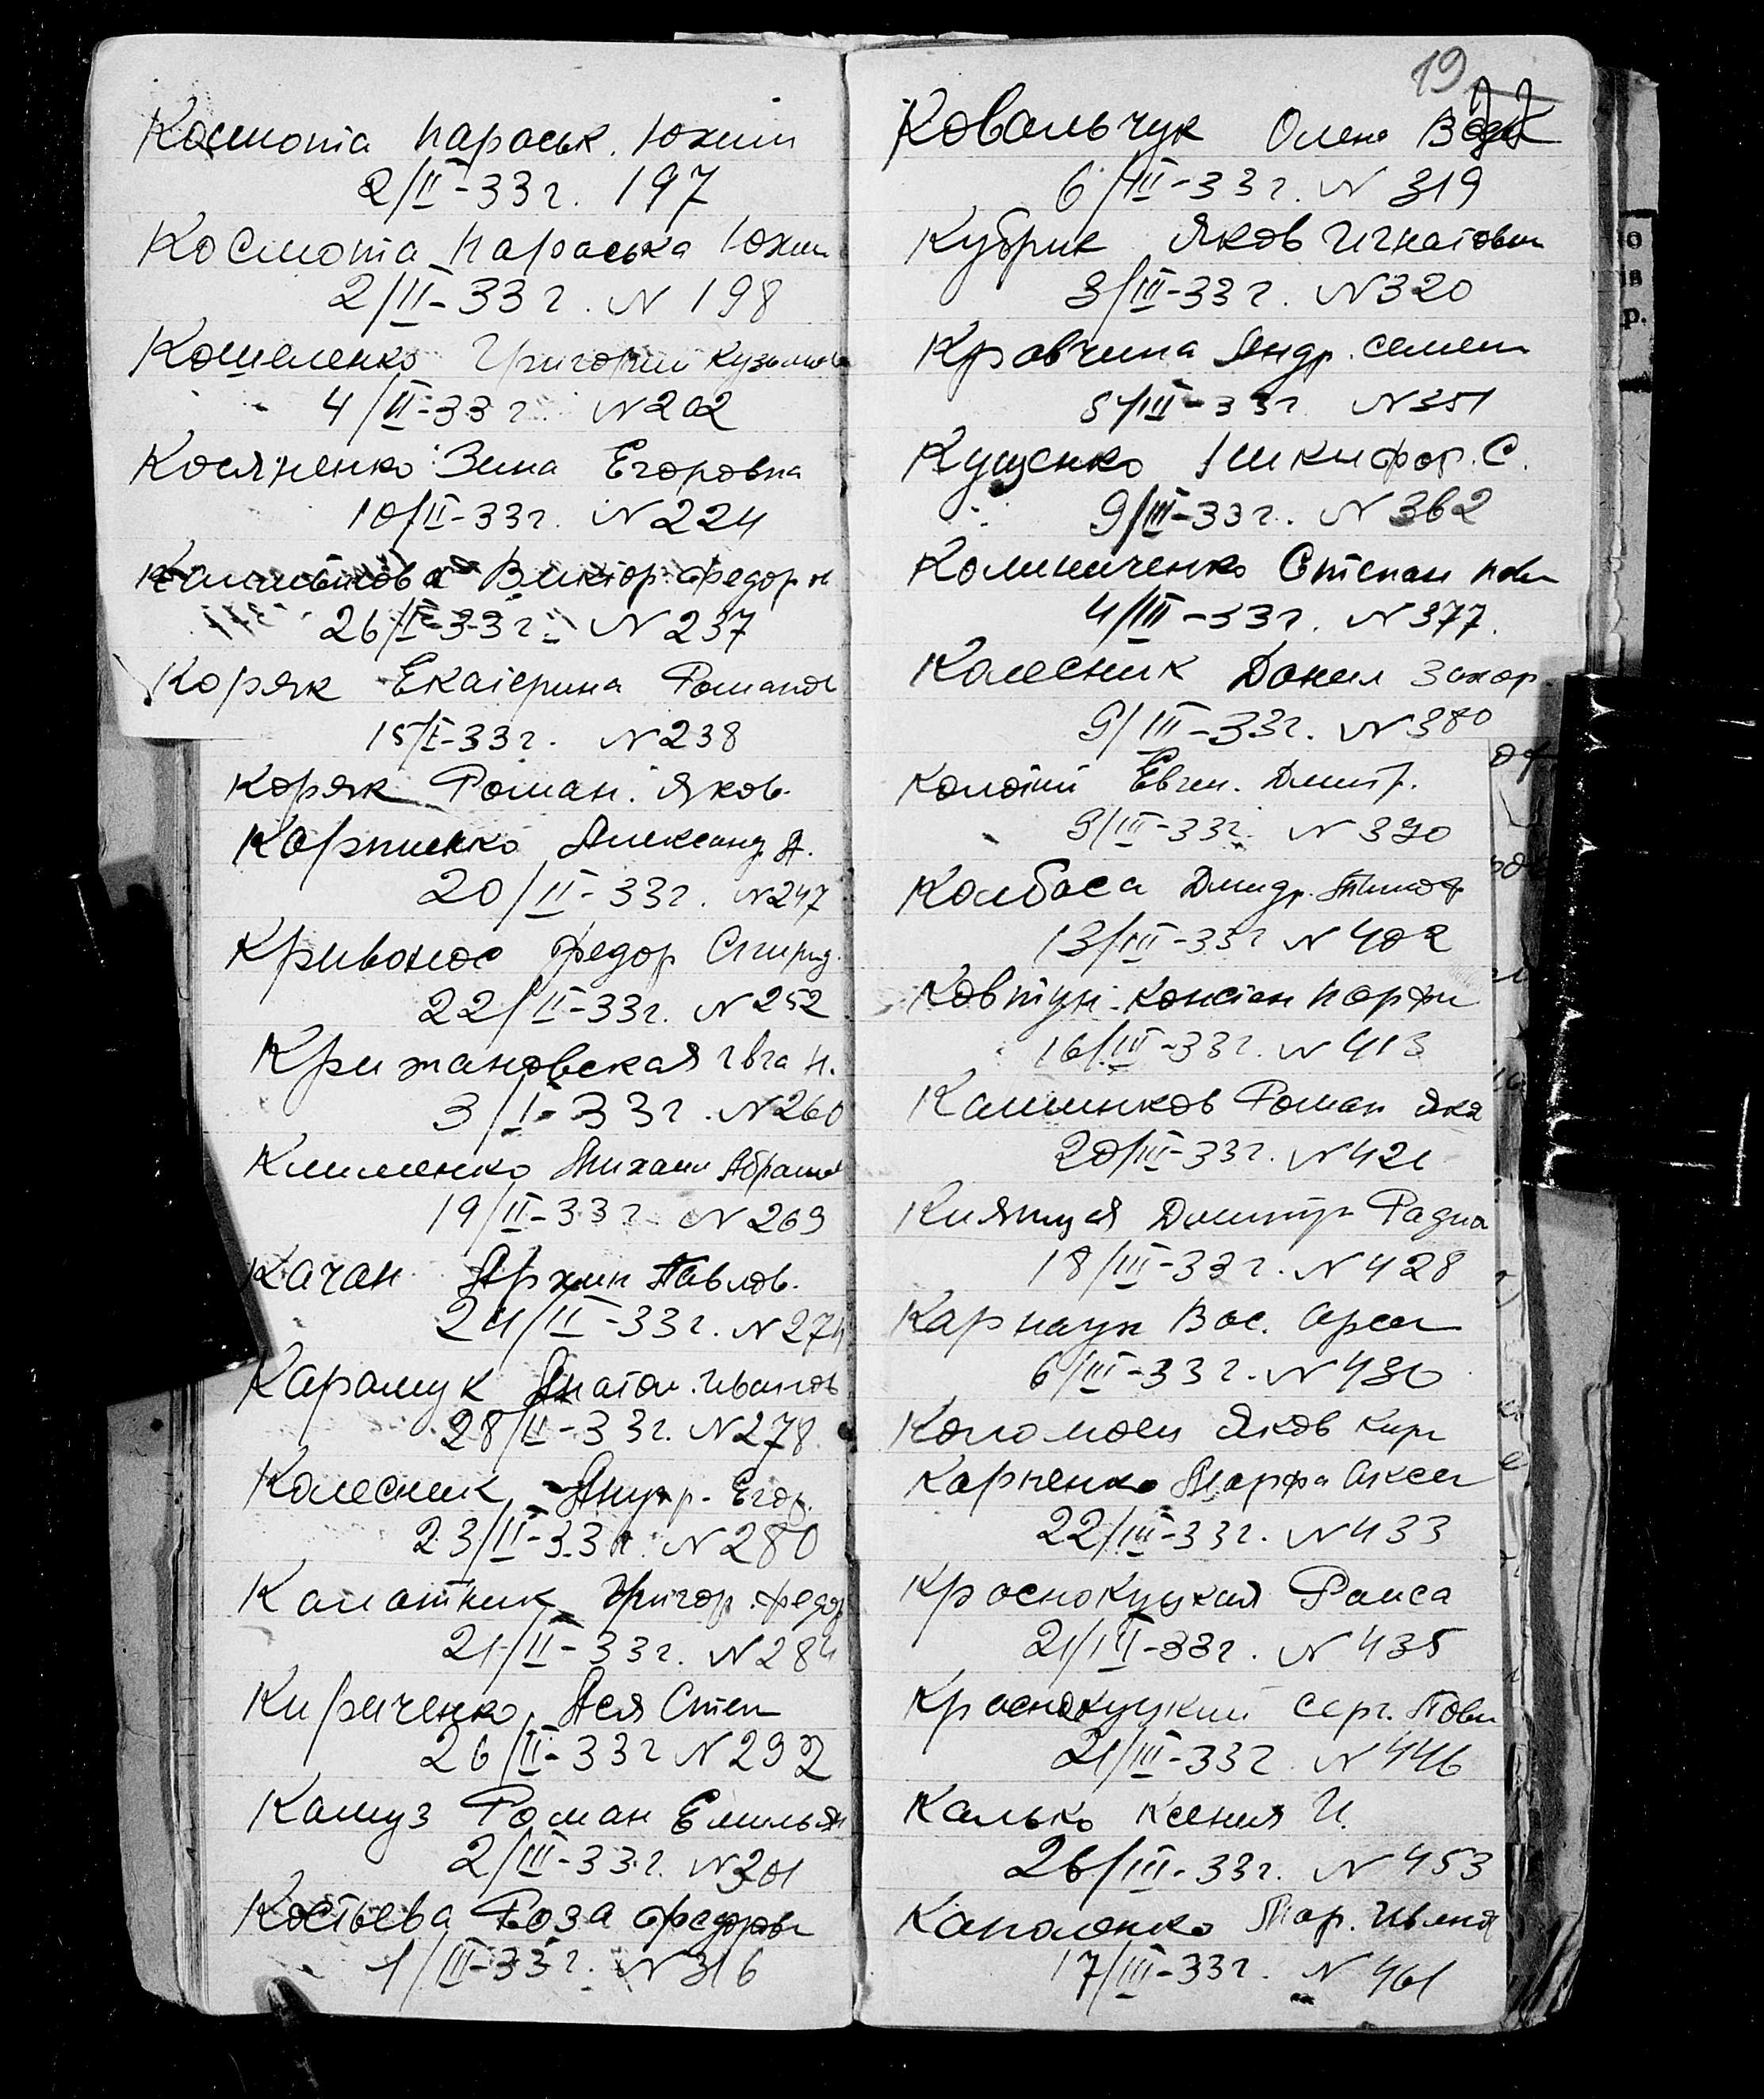 Космота Параськ. Юхим
2/II-33 г. 197
Космота Параська Юхим
2/II-33 г. N 198
Кошеленко Григорий Кузьмов
4/II-33 г. N 202
Косяненко Зина Егоровна
10/II-33 г. N 224
Виктор. Федор
26/II-33 г. N 237
Коряк Екатерина Романов
15/I-33 г. N 238
Коряк Роман. Яков.
Корниенко Александ. А.
20/II-33 г. N 247
Кривонос Федор Спирид.
22/II-33 г. N 252
Крижановская
3/I-33 г. N 260
Клименко Михаил Абрамов
19/II-33 г. N 269
Качан Архип Павлов.
24/II-33 г. N 274
Карамук Анатол. Иванов
28/II-33 г. N 278
Колесник Егор.
23/II-33 г. N 280
Канатник Григор. Федор
21/II-33 г. N 284
Кириченко Ася Степ
26/II-33 г. N 292
Камуз Роман Емельян
2/III-33 г. N 301
Костьева Роза Федоров
1/III-33 г. N 316
19
Ковальчук Олена
6/III-33 г. N 319
Кубрик Яков Игнатович
3/III-33 г. N 320
Кравчина Андр. Семен
5/III-33 г. N 351
Кущенко Никифор. С.
9/III-33 г. N 362
Колиниченко Степан Пав
4/III-33 г. N 377.
Колесник Данил Захар
9/III-33 г. N 380
Колотий Евген. Дмитр.
9/III-33 г. N 390
Колбаса Дмидр. Тимоф
13/III-33 г. N 402
Ковтун Констан Порфи
16/III-33 г. N 413
Калинков Роман Яков
20/III-33 г. N 421
Княжуся Дмитр Радио
18/III-33 г. N 428
Карнаух Вас. Арсен
6/III-33 г. N 430
Коломоец Яков Кир
Карпенко Марфа Аксен
22/III-33 г. N 433
Краснокуцкая Раиса
21/III-33 г. N 435
Краснокуцкий Серг. Павл
21/III-33 г. N 446
Калько Ксения И.
26/III-33 г. N 453
Капаленко Мар. Ивано
17/III-33 г. N 461